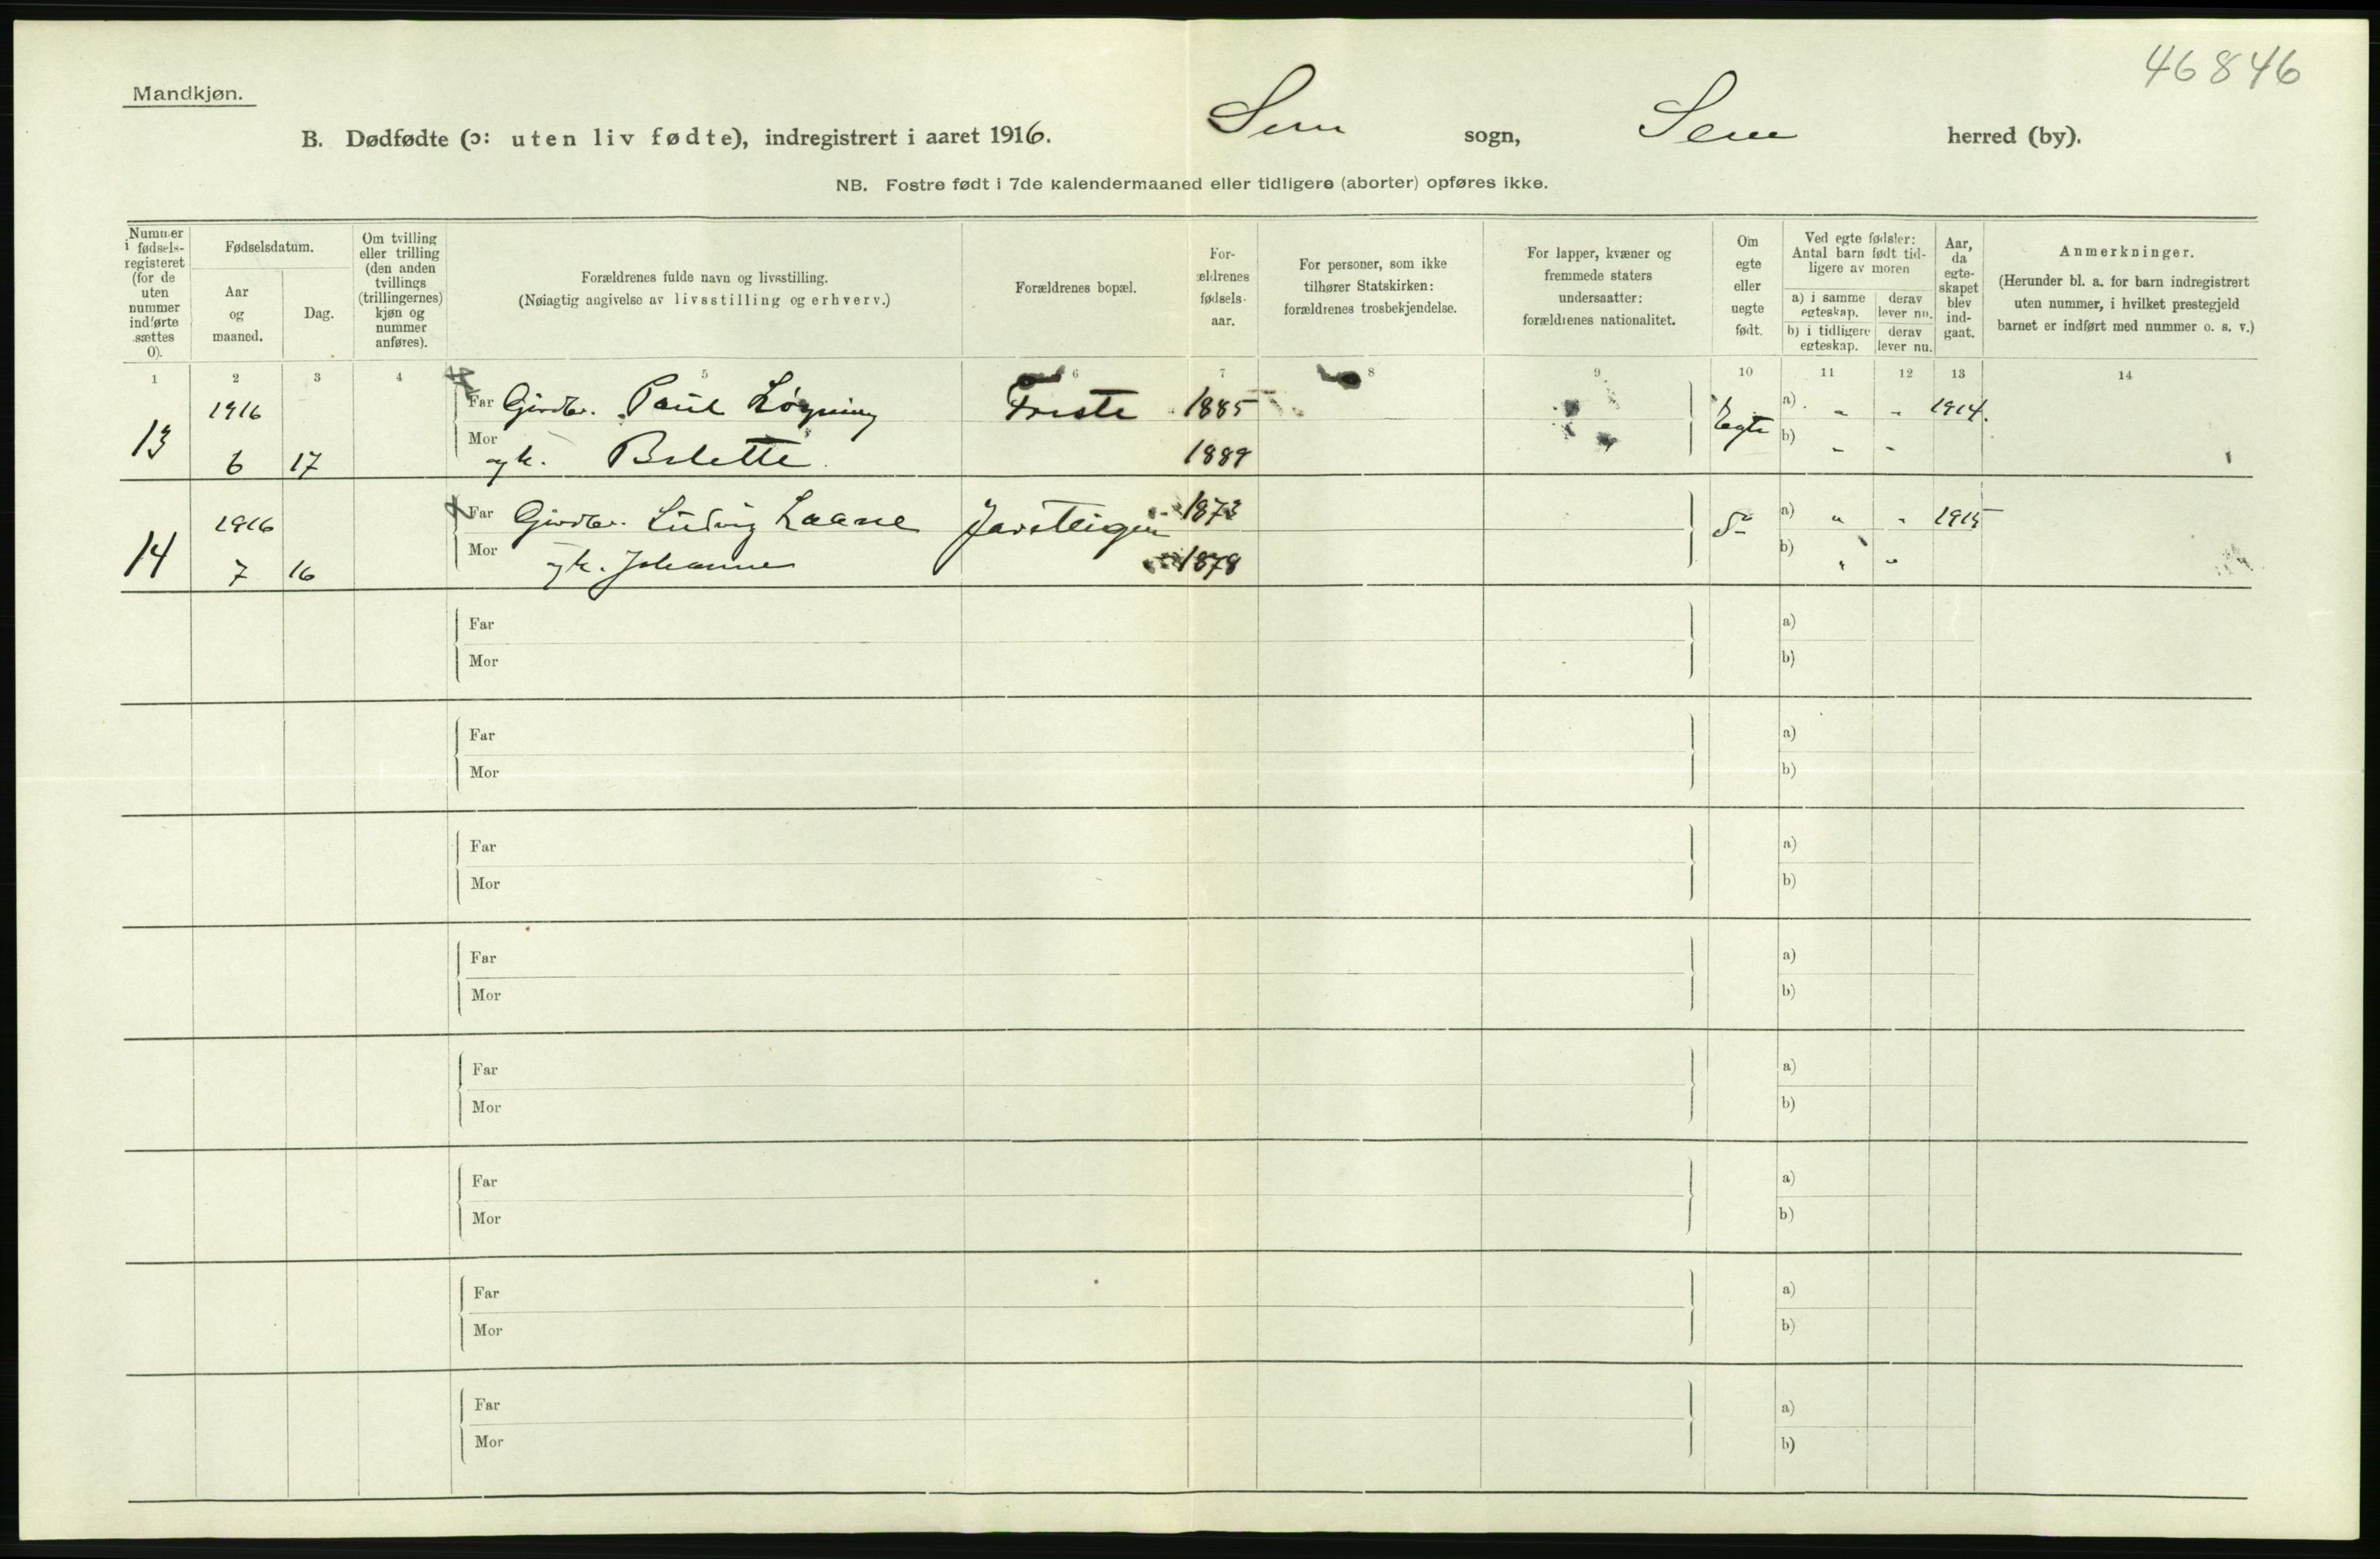 46846
Mandkjøn.
B. Dødfødte (ɔ: uten liv fødte), indregistrert i aaret 1916. Sem sogn, Sem herred (by).
NB. Fostre født i 7de kalendermaaned eller tidligere (aborter) opføres ikke.
Nummer i fødsels-registeret (for de uten nummer indførte sættes 0).
Fødselsdatum.
Aar og maaned.
Dag.
Om tvilling eller trilling (den anden tvillings (trillingernes) kjøn og nummer anføres).
Forældrenes fulde navn og livsstilling.
(Nøiagtig angivelse av livsstilling og erhverv.)
Forældrenes bopæl.
For-ældrenes fødsels-aar.
For personer, som ikke tilhører Statskirken: forældrenes trosbekjendelse.
For lapper, kvæner og fremmede staters undersaatter: forældrenes nationalitet.
Om egte eller uegte født.
Ved egte fødsler: Antal barn født tid-ligere av moren
a) i samme egteskap.
derav lever nu.
b) i tidligere egteskap.
derav lever nu.
Aar, da egte-skapet blev ind-gaat.
Anmerkninger.
(Herunder bl. a. for barn indregistrert uten nummer, i hvilket prestegjeld barnet er indført med nummer o. s. v.)
1 2 3 4 5 6 7 8 9 10 11 12 13 14
13 1916 Far Paul 1885 Egte a) " " 1914.
6 17 Mor 1889 b) " "
14 1916 Far Ludvig Laane 1873 do a) " " 1915
7 16 Mor Johanne 1878 b) " "
Far a)
Mor b)
Far a)
Mor b)
Far a)
Mor b)
Far a)
Mor b)
Far a)
Mor b)
Far a)
Mor b)
Far a)
Mor b)
Far a)
Mor b)